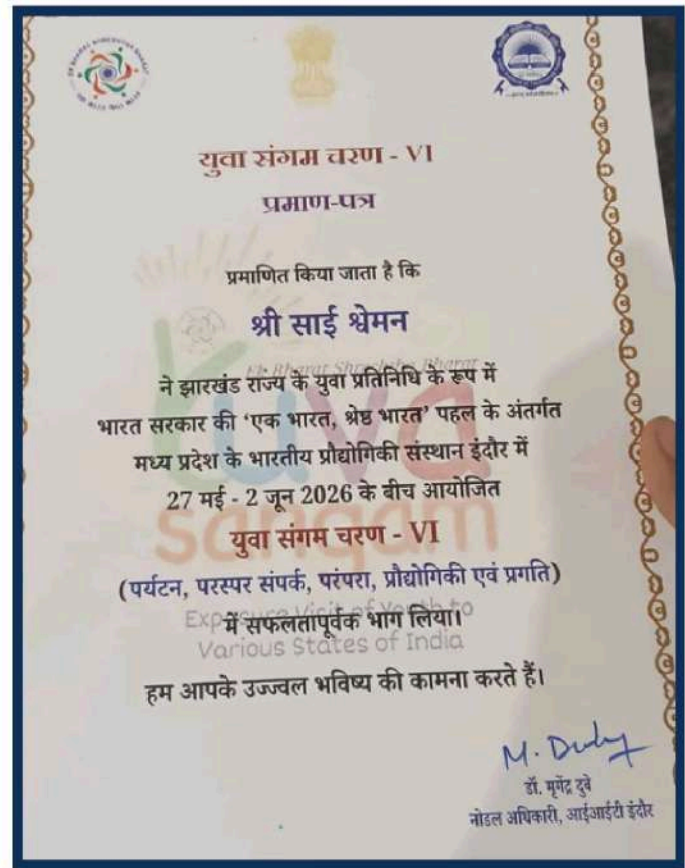 युवा संगम चरण - VI
प्रमाण-पत्र
प्रमाणित किया जाता है कि
श्री साई श्वेमन
ने झारखंड राज्य के युवा प्रतिनिधि के रूप में
भारत सरकार की ‘एक भारत, श्रेष्ठ भारत’ पहल के अंतर्गत
मध्य प्रदेश के भारतीय प्रौद्योगिकी संस्थान इंदौर में
27 मई - 2 जून 2026 के बीच आयोजित
युवा संगम चरण - VI
(पर्यटन, परस्पर संपर्क, परंपरा, प्रौद्योगिकी एवं प्रगति)
में सफलतापूर्वक भाग लिया।
हम आपके उज्ज्वल भविष्य की कामना करते हैं।
Ek Bharat Shreshtha Bharat
Yuva
Sangam
Exposure Visit of Youth to
Various States of India
M. Dubey
डॉ. मृगेंद्र दुबे
नोडल अधिकारी, आईआईटी इंदौर